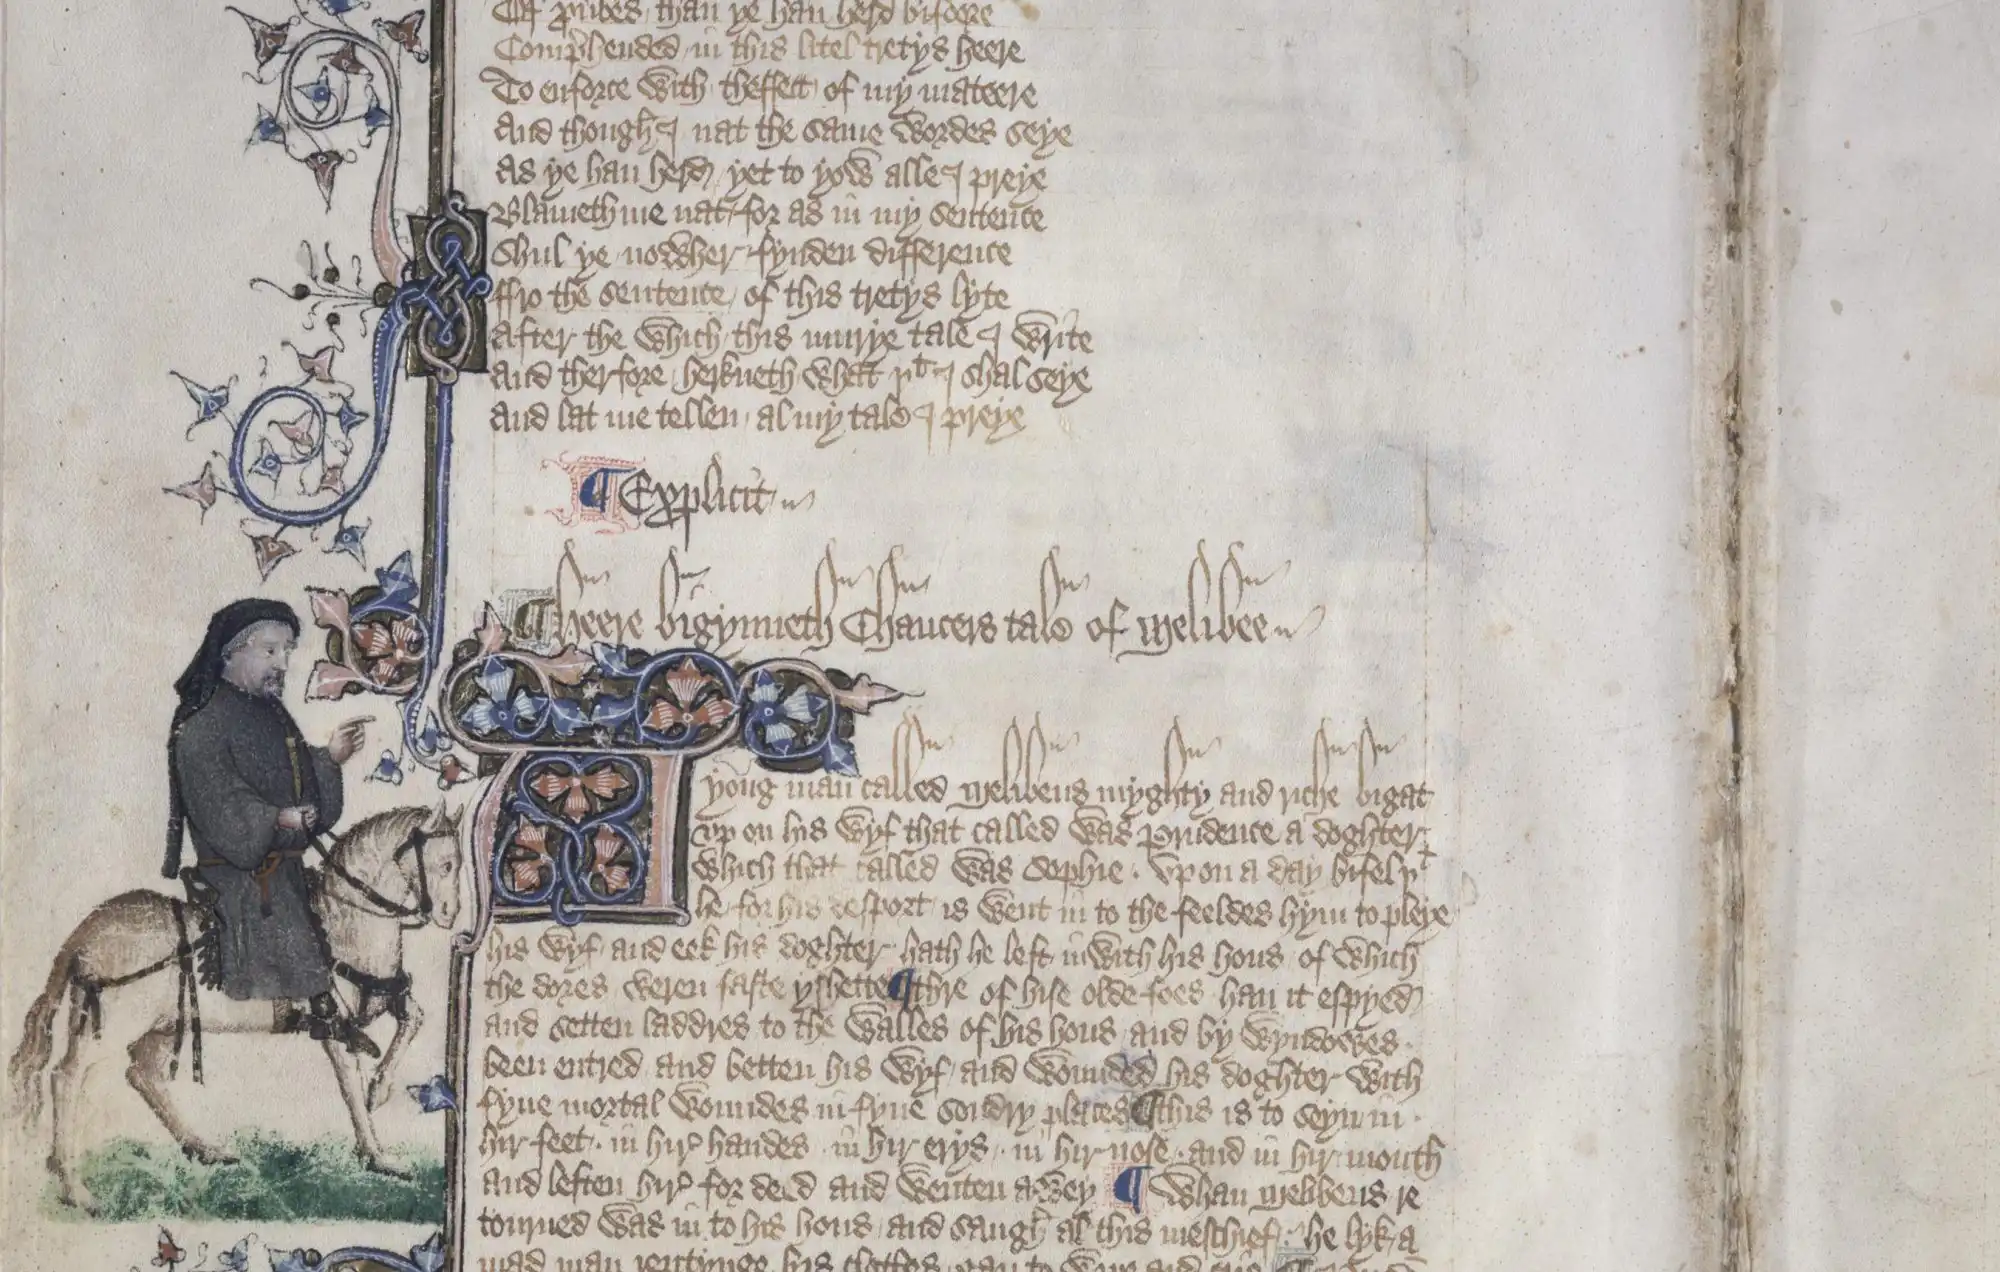 Of prouerbes, than ye han herd bifoore
Comprehended, in this litel tretys heere
To enforce with, theffect of my mateere
And though I nat the same wordes seye
As ye han herd, yet to yow alle I preye
Blameth me nat, for as in my sentence
Shul ye nowher fynden difference
ffro the sentence, of this tretys lyte
After the which, this murye tale I write
And therfore, herkneth what þt I shal seye
And lat me tellen, al my tale I preye
¶ Explicit
¶ Heere bigynneth Chaucers tale of Melibee
A yong man called Melibeus myghty and riche bigat
vp on his wyf that called was Prudence a doghter
which that called was Sophie . Vpon a day bifel þt
he for his desport, is went in to the feeldes hym to pleye
his wyf, and eek his doghter, hath he left inwith his hous, of which
the dores, weren faste yshette ¶ thre of hise olde foes, han it espyed
and setten laddres to the walles of his hous, and by wyndowes
been entred, and betten his wyf, and wounded his doghter with
fyue mortal woundes in fyue sondry places ¶ this is to seyn in
hir feet . in hir handes . in hir erys . in hir nose . and in hir mouth
and leften hir for deed and wenten awey ¶ Whan Melibeus re
tourned was in to his hous, and saugh al this meschief . he lyk a
mad man rentynge his clothes, gan to wepe and crie